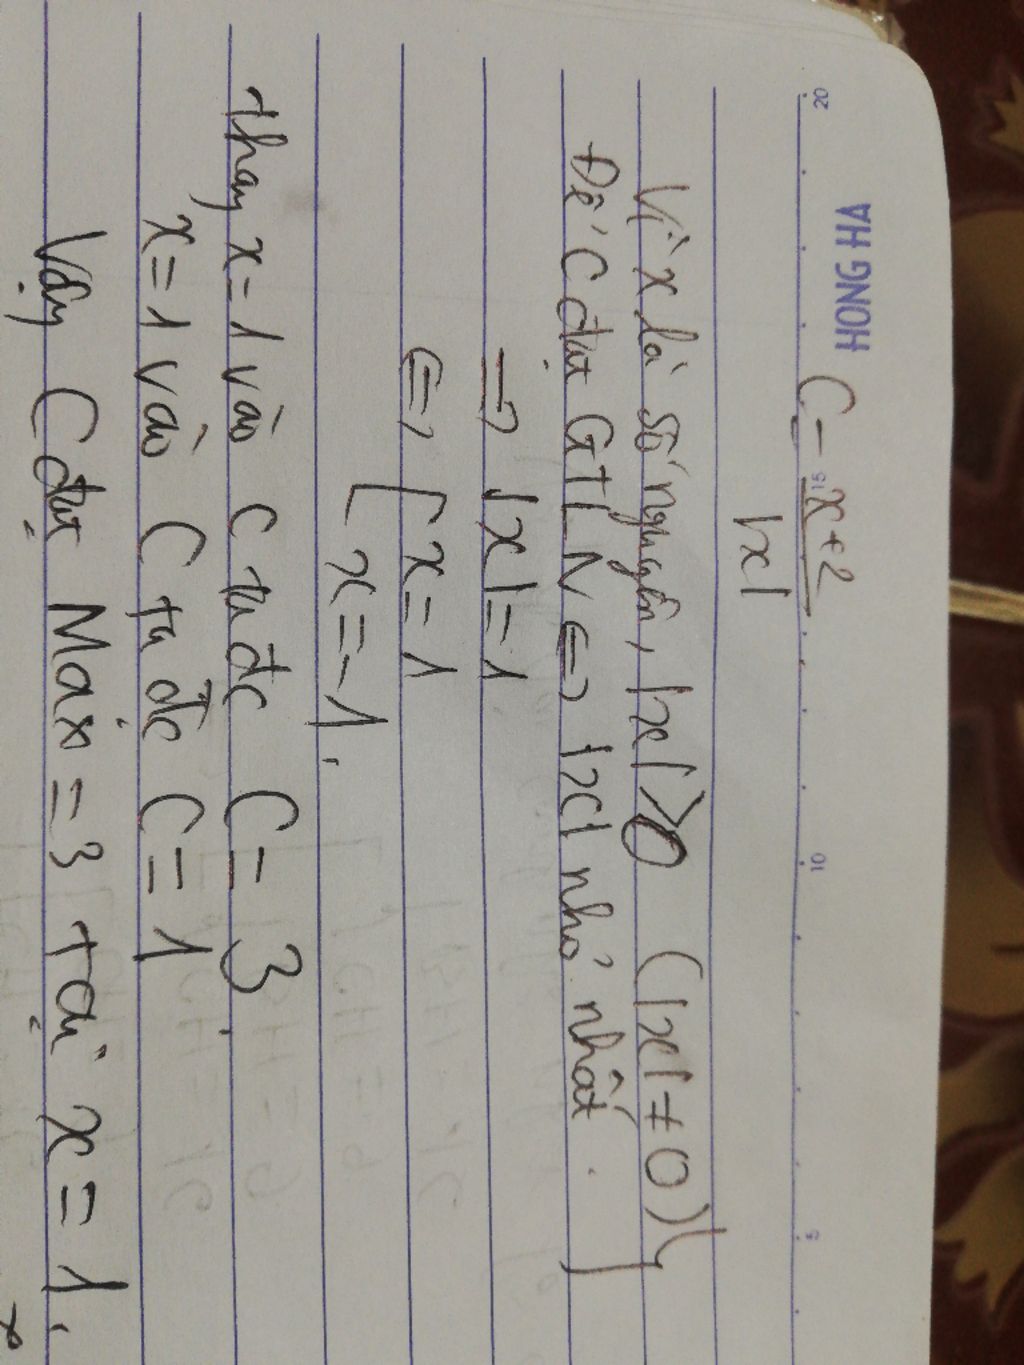 HONG HA
20 15 10 5
C = x+2
|x|
Vì x là số nguyên, |x| > 0 (|x| ≠ 0)
Để C đạt GTLN <=> |x| nhỏ nhất.
=> |x| = 1
<=> [x = 1
[x = -1.
thay x = 1 vào C ta đc C = 3.
x = 1 vào C ta đc C = 1
Vậy C đạt Max = 3 tại x = 1.